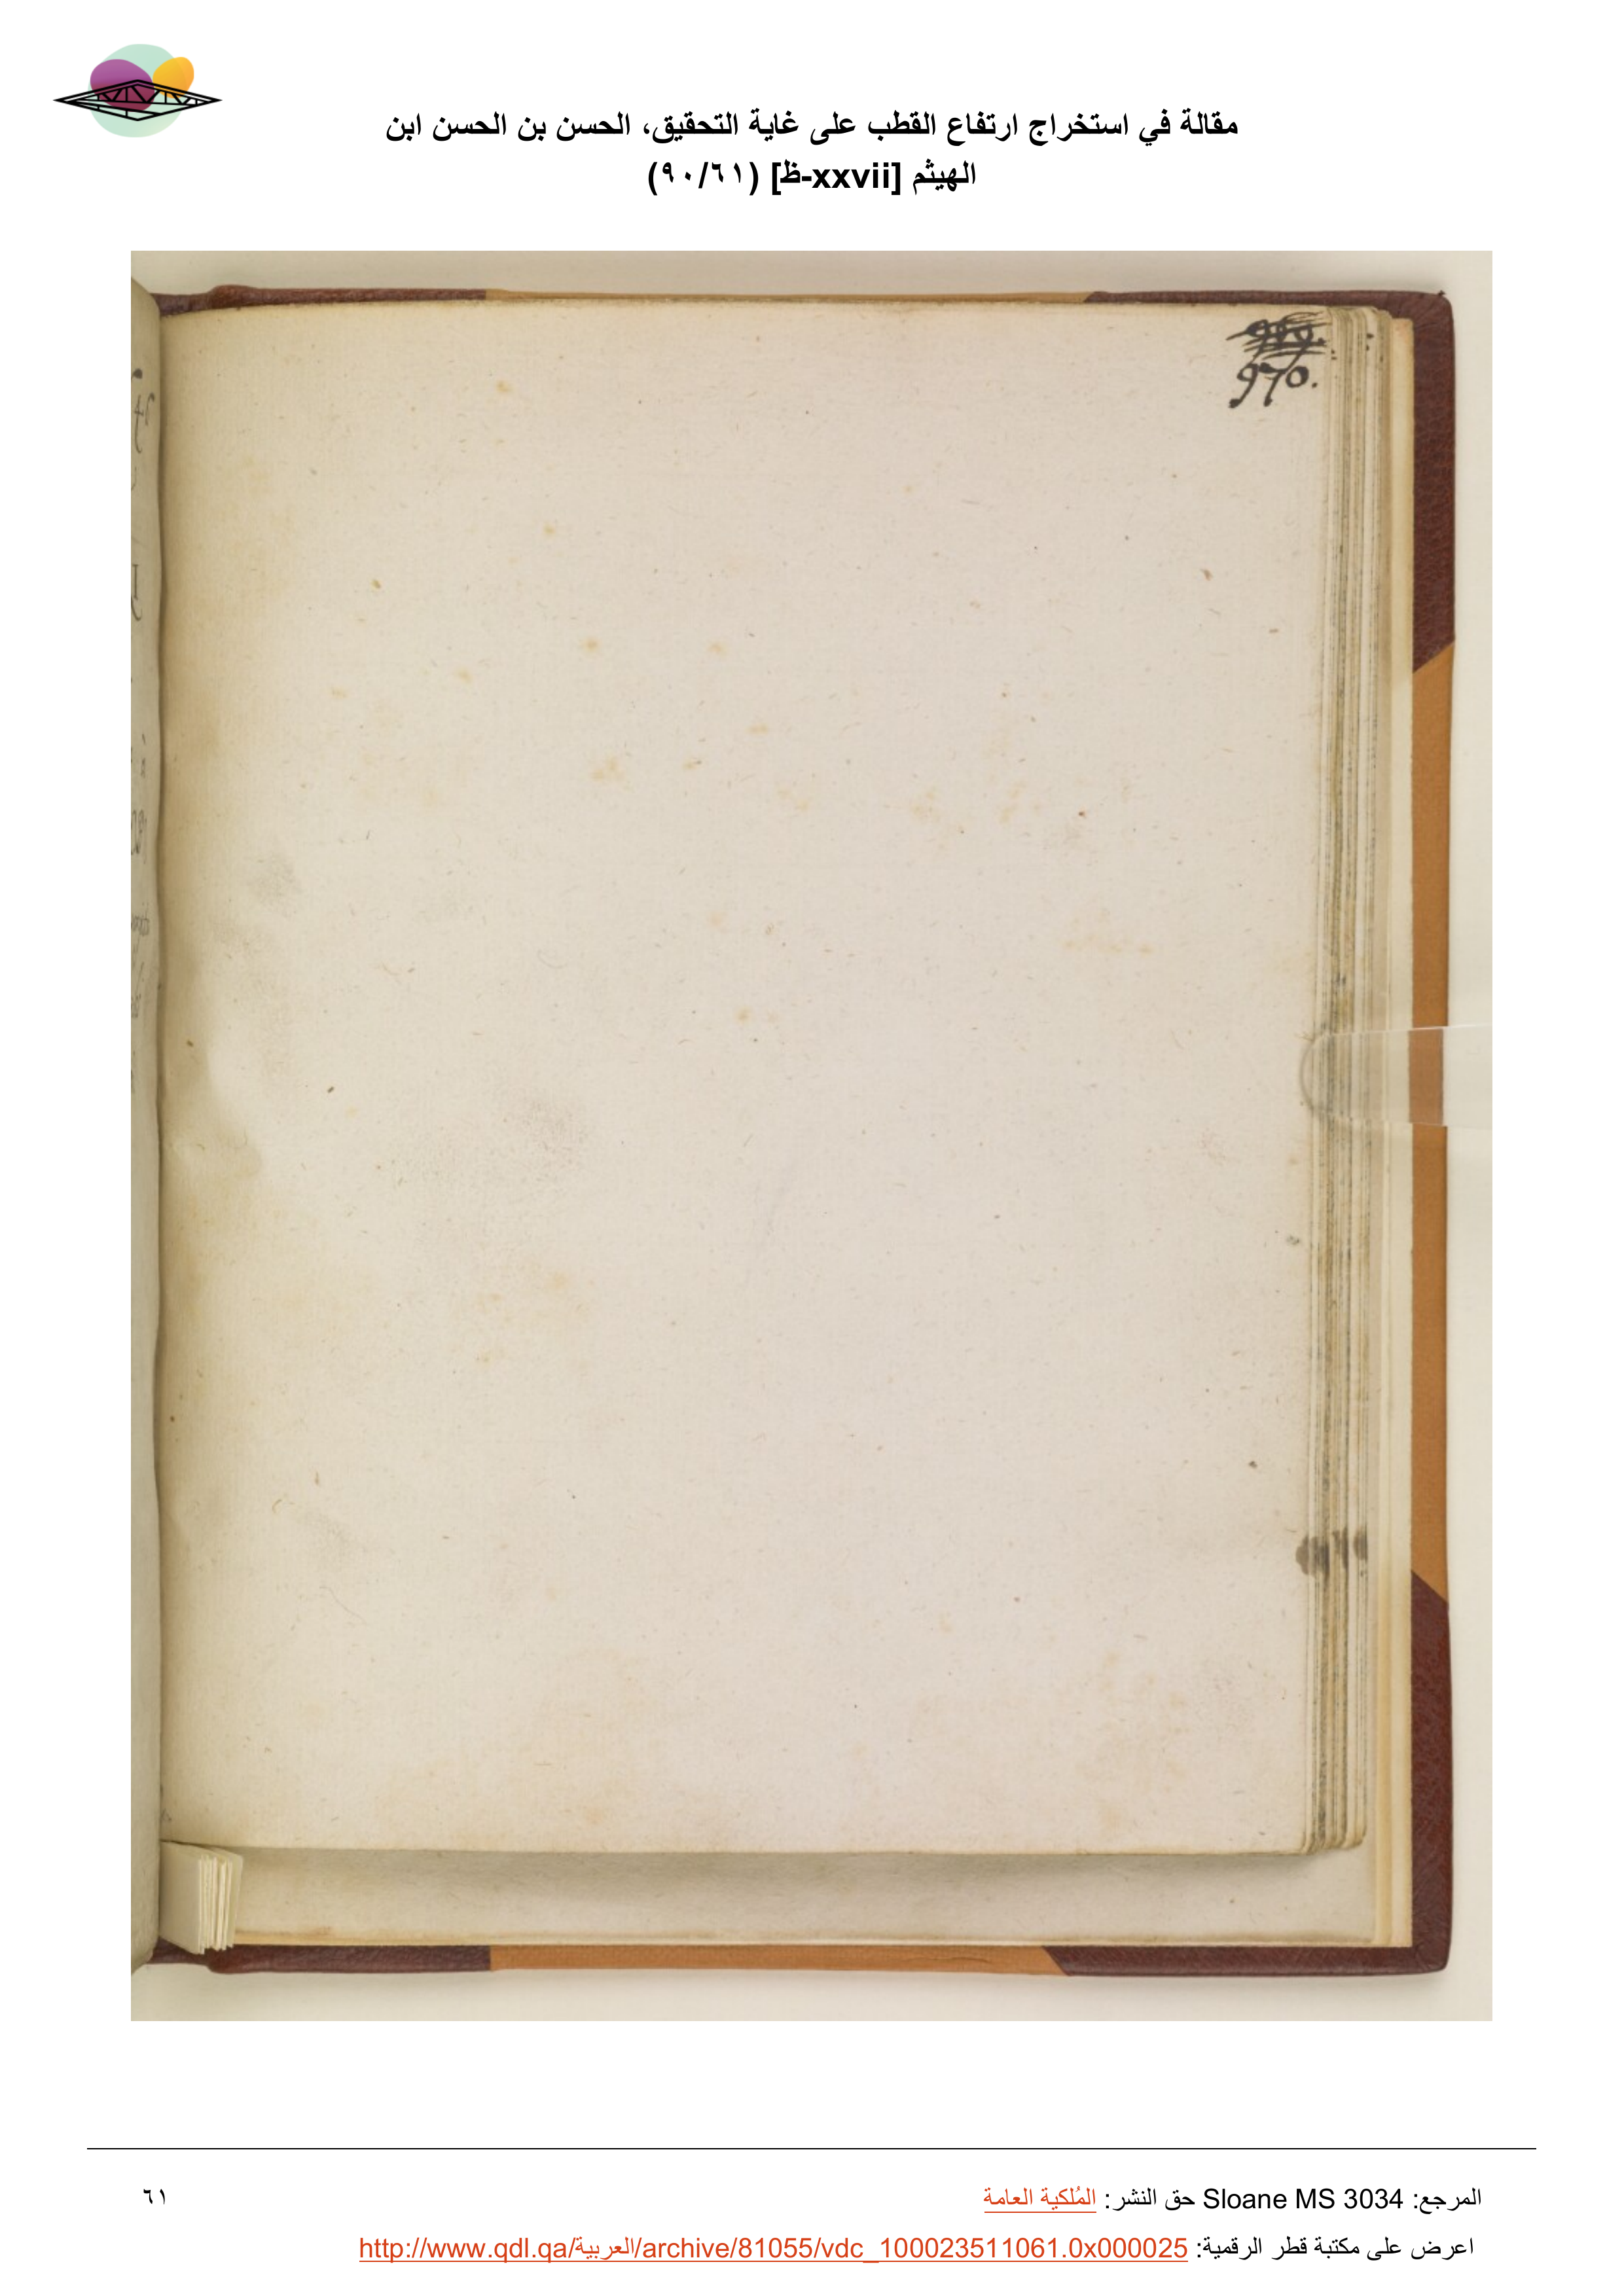 مقالة في استخراج ارتفاع القطب على غاية التحقيق، الحسن بن الحسن ابن
الهيثم [xxvii-ظ] (٩٠/٦١)
970.
المرجع: Sloane MS 3034 حق النشر: المُلكية العامة
٦١
اعرض على مكتبة قطر الرقمية: http://www.qdl.qa/العربية/archive/81055/vdc_100023511061.0x000025